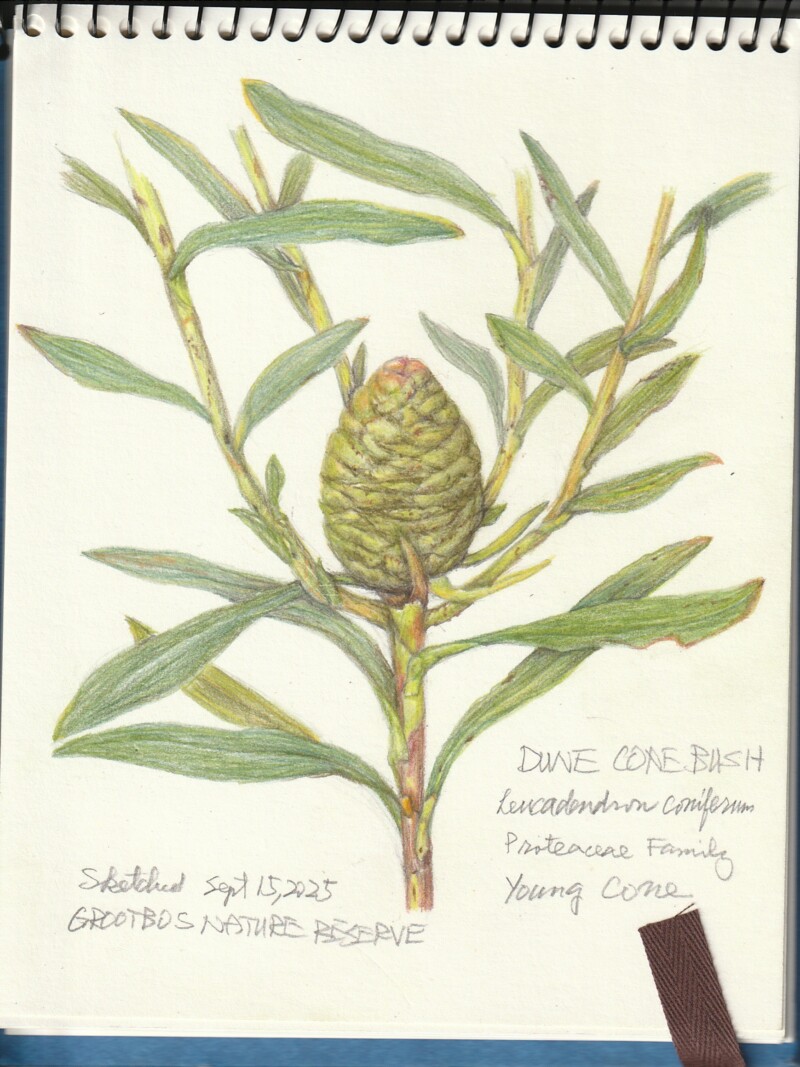 DUNE CONE BUSH
Leucadendron coniferum
Proteaceae Family
Young Cone
Sketched Sept 15, 2025
GROOTBOS NATURE RESERVE